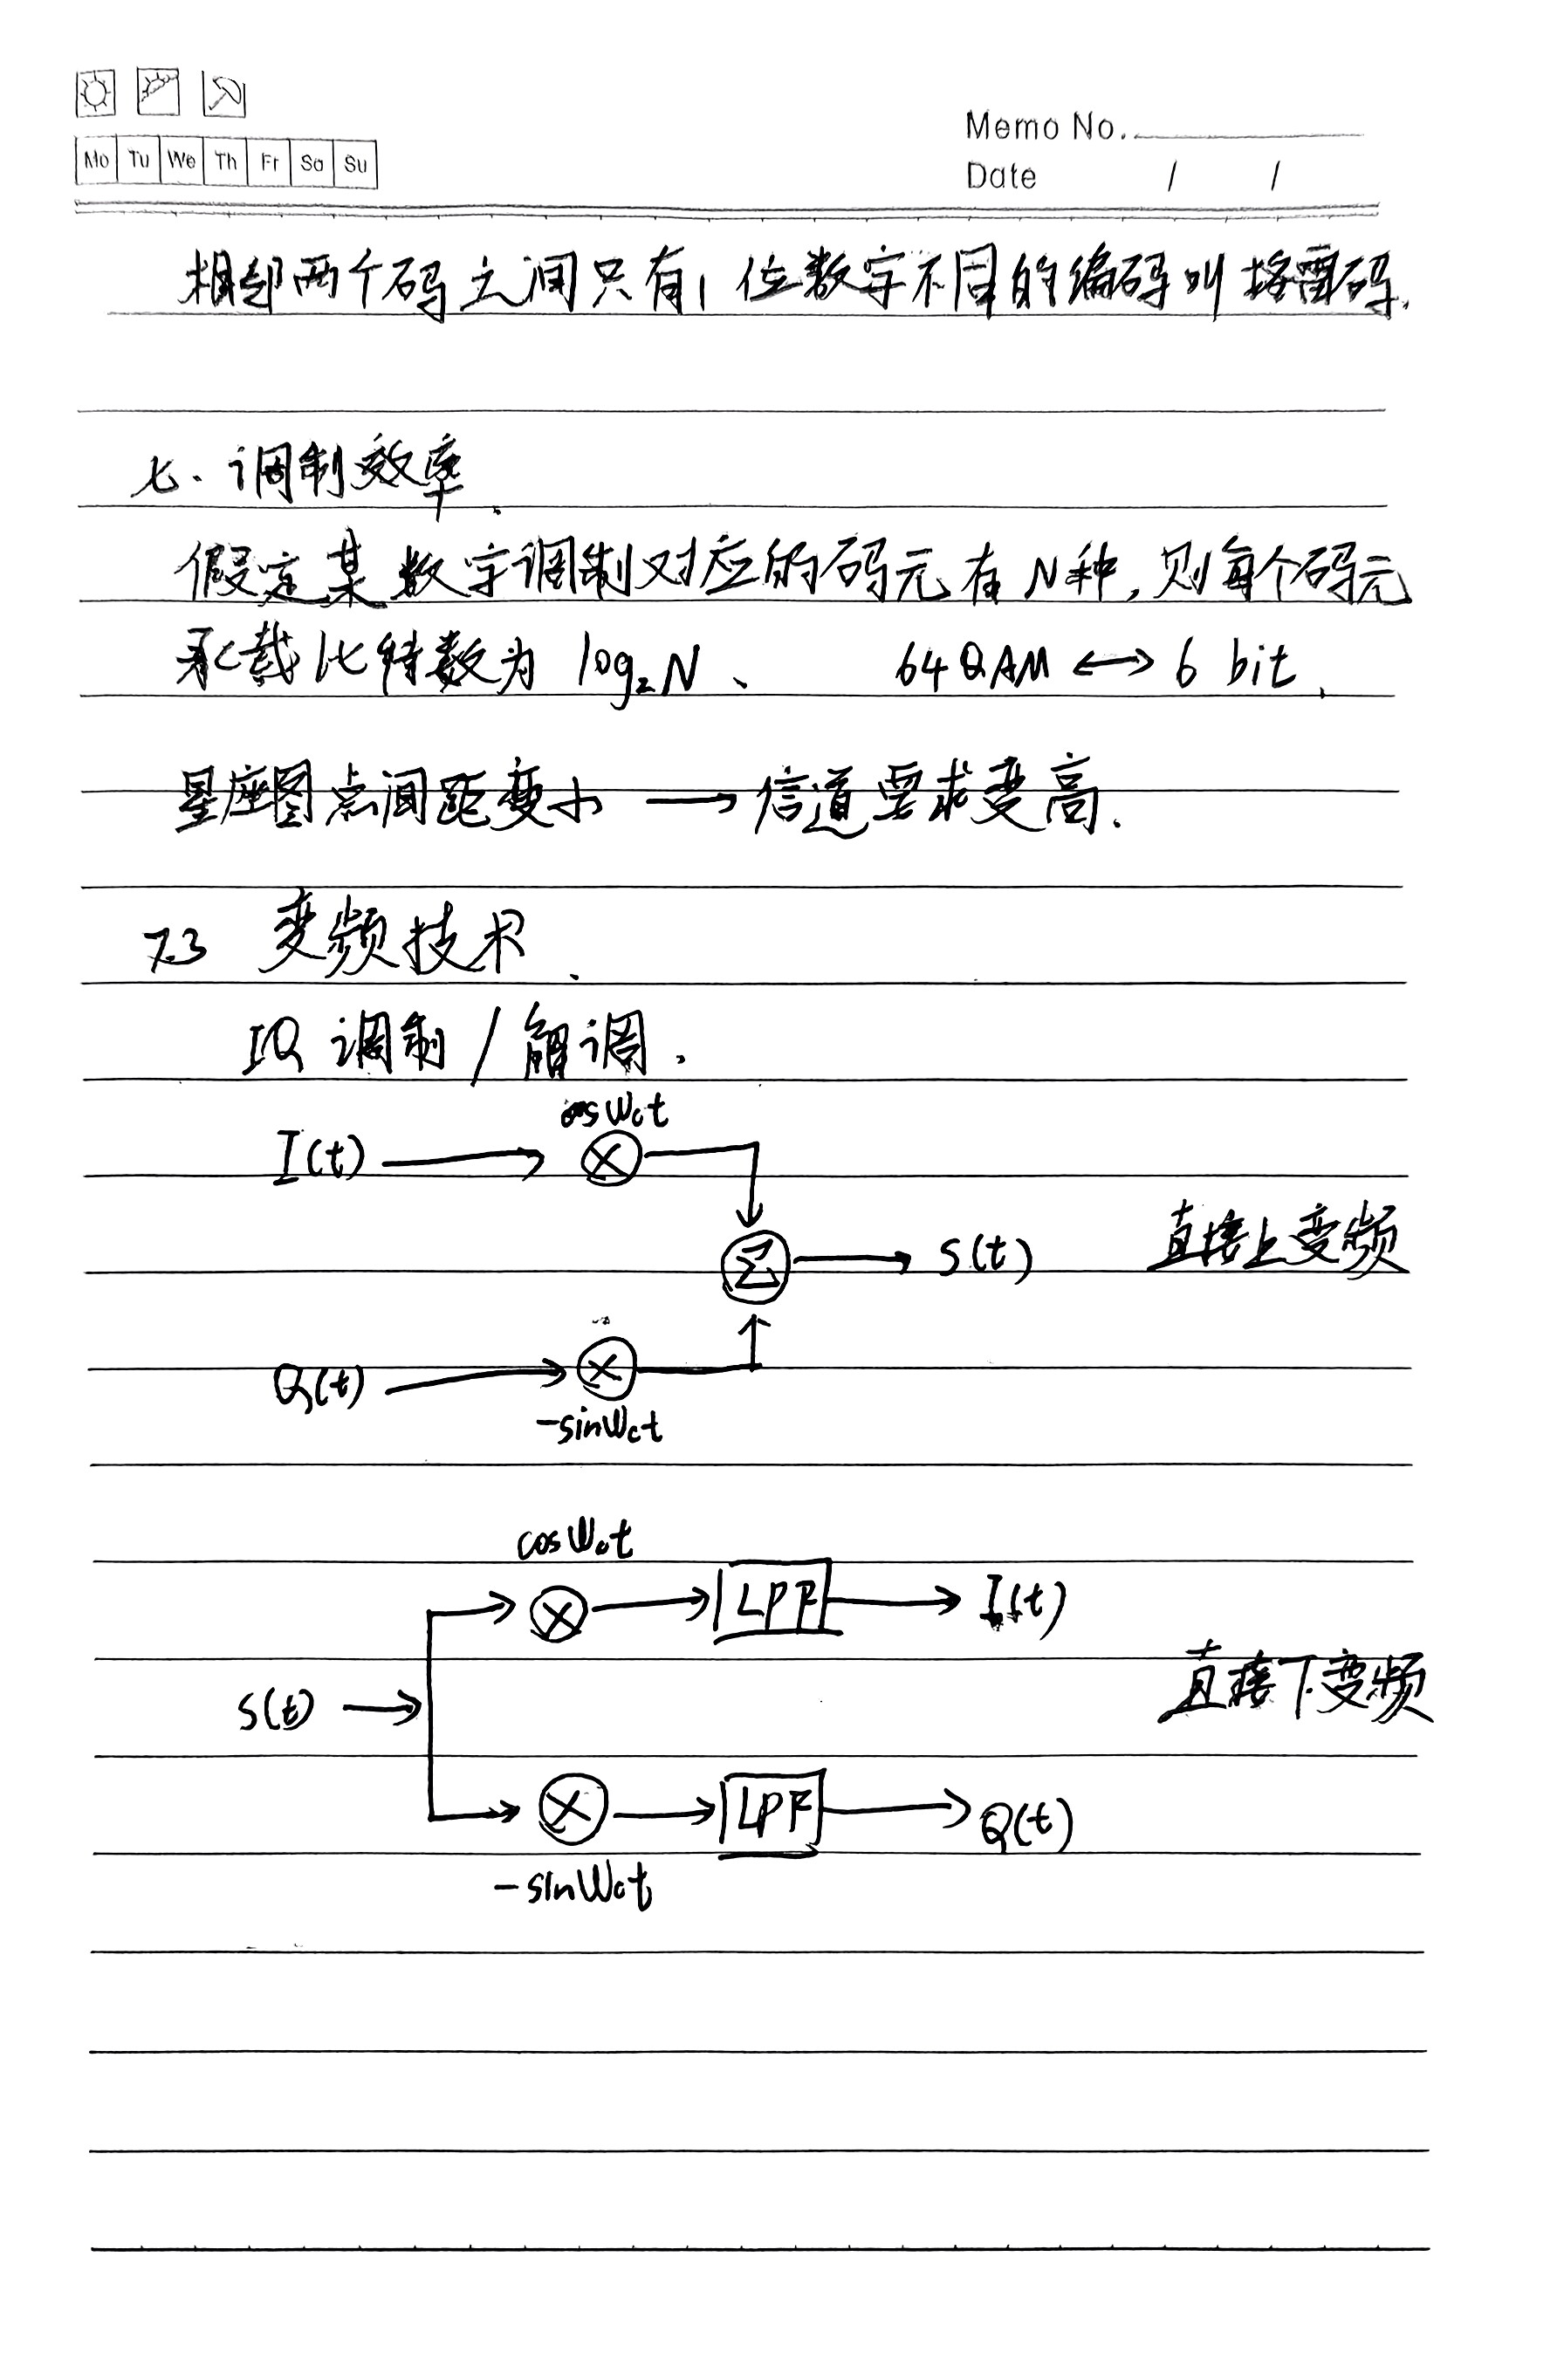 Mo Tu We Th Fr Sa Su
Memo No.
Date / /
相邻两个码之间只有1位数字不同的编码叫格雷码.
七、调制效率.
假定某数字调制对应的码元有N种,则每个码元
承载比特数为 log₂N、 64QAM ⟷ 6 bit.
星座图点间距变小 → 信道要求变高.
7.3 变频技术.
IQ 调制/解调.
cosω₀t
I(t)
Σ → S(t) 直接上变频
Q(t)
-sinωct
cosω₀t
LPF I(t)
S(t) 直接下变频
LPF Q(t)
-sinω₀t